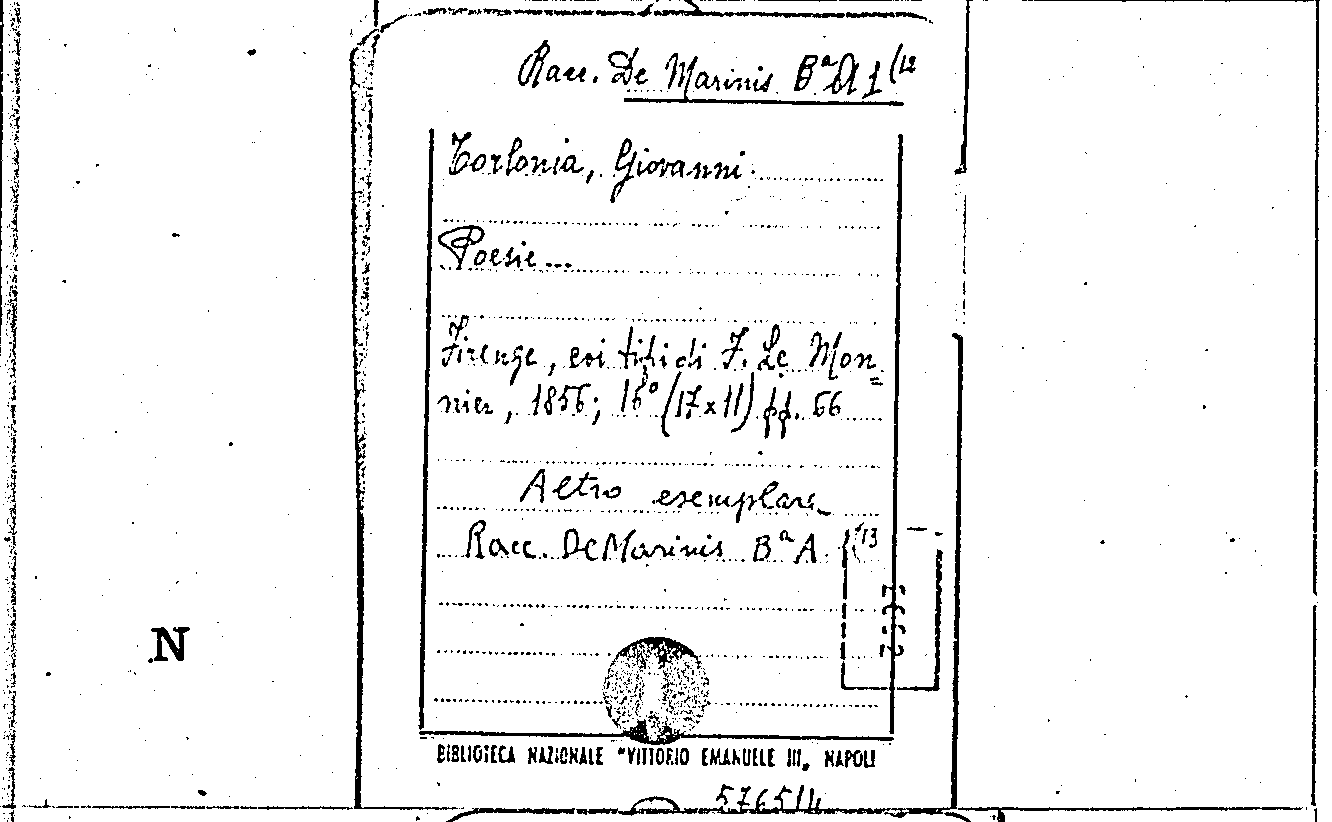 Racc. De Marinis Bª A 1 (12
Torlonia, Giovanni.
Poesie...
Firenze, coi tipi di F. Le Mon=
nier, 1856; 16° (17x11) pp. 66
Altro esemplare
Racc. De Marinis Bª A. 1 (13
N
BIBLIOTECA NAZIONALE "VITTORIO EMANUELE III„ NAPOLI
576514